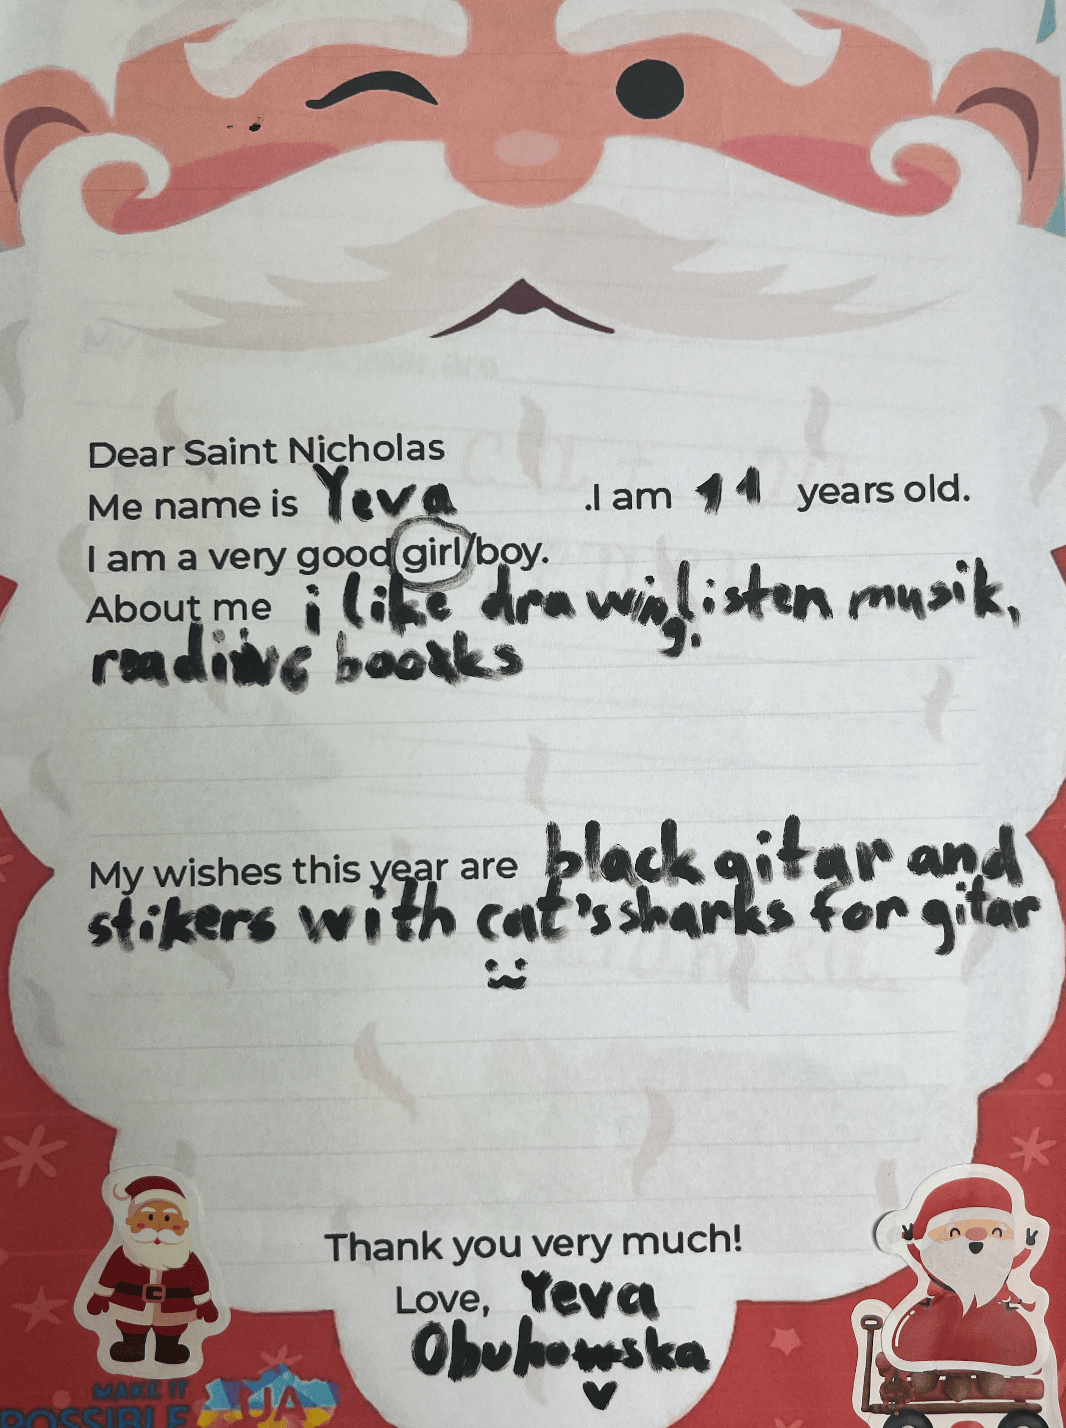 Dear Saint Nicholas
Me name is Yeva .I am 11 years old.
I am a very good girl/boy.
About me i like drawing, listen musik,
reading books
My wishes this year are black gitar and
stikers with cat's sharks for gitar
Thank you very much!
Love, Yeva
Obuhowska
MAKE IT
POSSIBLE UA